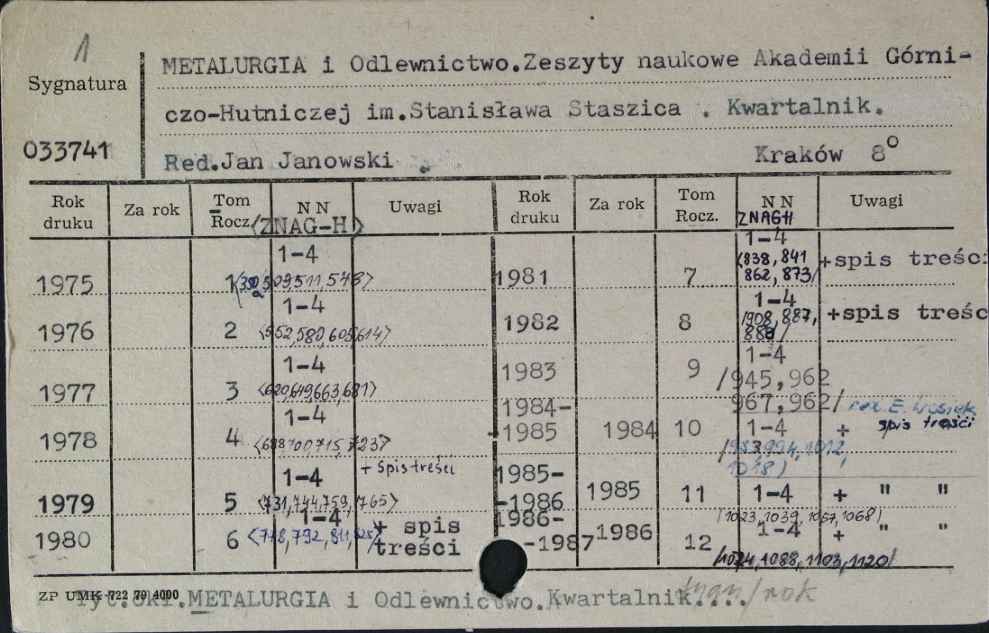 1
METALURGIA i Odlewnictwo.Zeszyty naukowe Akademii Górni-
Sygnatura
czo-Hutniczej im.Stanisława Staszica . Kwartalnik.
033741
Red.Jan Janowski .
Kraków 8°
Rok druku Za rok Tom Rocz. N N Uwagi Rok druku Za rok Tom Rocz. N N Uwagi
(ZNAG-H) ZNAGH
1975 1 1-4
1976 2 1-4
1977 3 1-4
(620,649,663,681)
1978 4 1-4
+ spis treści
1979 5 1-4
(731,744,759,765)
1980 6 1-4 + spis treści
1981 7 1-4 +spis treści
(838, 841
862, 873/
1982 8 1-4 +spis treśc
/908, 887,
1983 9 1-4
/945,962
967,962/
1984-
-1985 1984 10 1-4 + spis treści
/983,994,1012,
1018)
1985-
-1986 1985 11 1-4 + " "
(1023,1039,1057,1068)
1986-
-1987 1986 12 1-4 + " "
1088,1103,1120/
ZP UMK 722 79 4000
Tyt.okł.METALURGIA i Odlewnictwo.Kwartalnik....